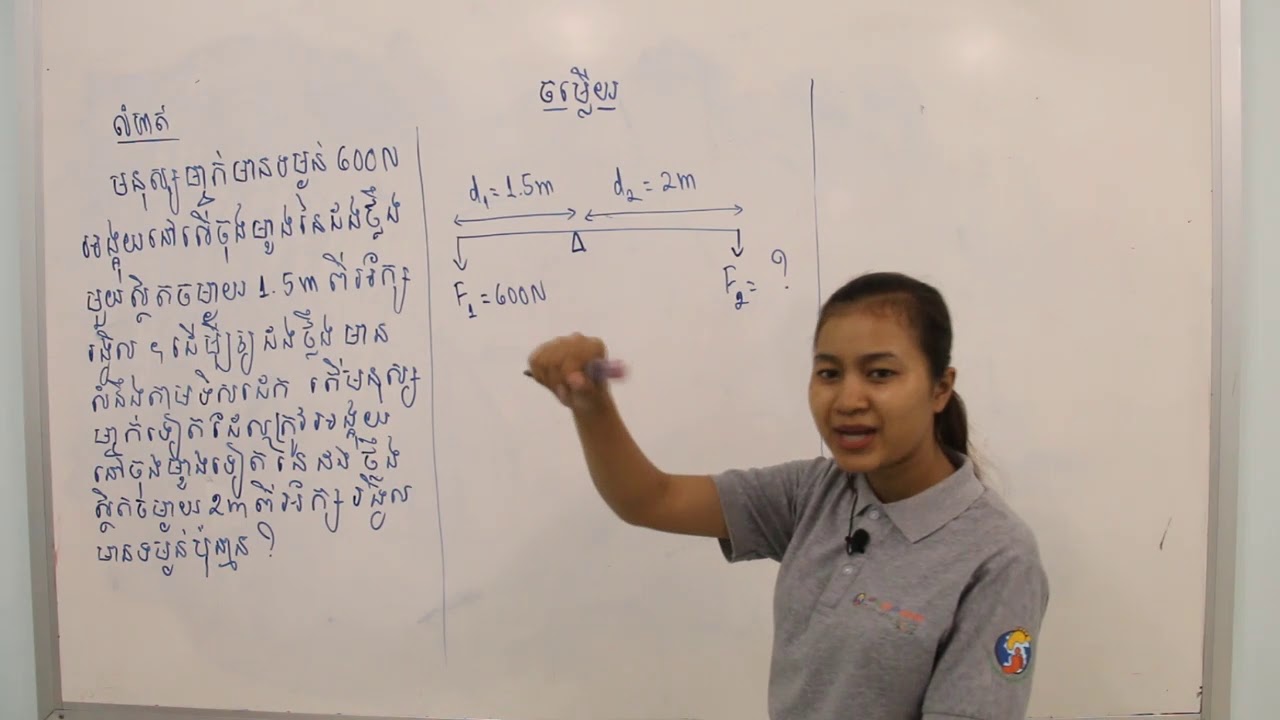 លំហាត់
មនុស្សម្នាក់មានទម្ងន់ 600N
អង្គុយនៅលើចុងម្ខាងនៃដងថ្លឹង
មួយស្ថិតចម្ងាយ 1.5m ពីអ័ក្ស
រង្វិល ។ ដើម្បីឲ្យដងថ្លឹងមាន
លំនឹងតាមទិសដេក តើមនុស្ស
ម្នាក់ទៀតដែលត្រូវអង្គុយ
នៅចុងម្ខាងទៀតនៃដងថ្លឹង
ស្ថិតចម្ងាយ 2m ពីអ័ក្សរង្វិល
មានទម្ងន់ប៉ុន្មាន ?
ចម្លើយ
d₁ = 1.5m
d₂ = 2m
F₁ = 600N
F₂ = ?